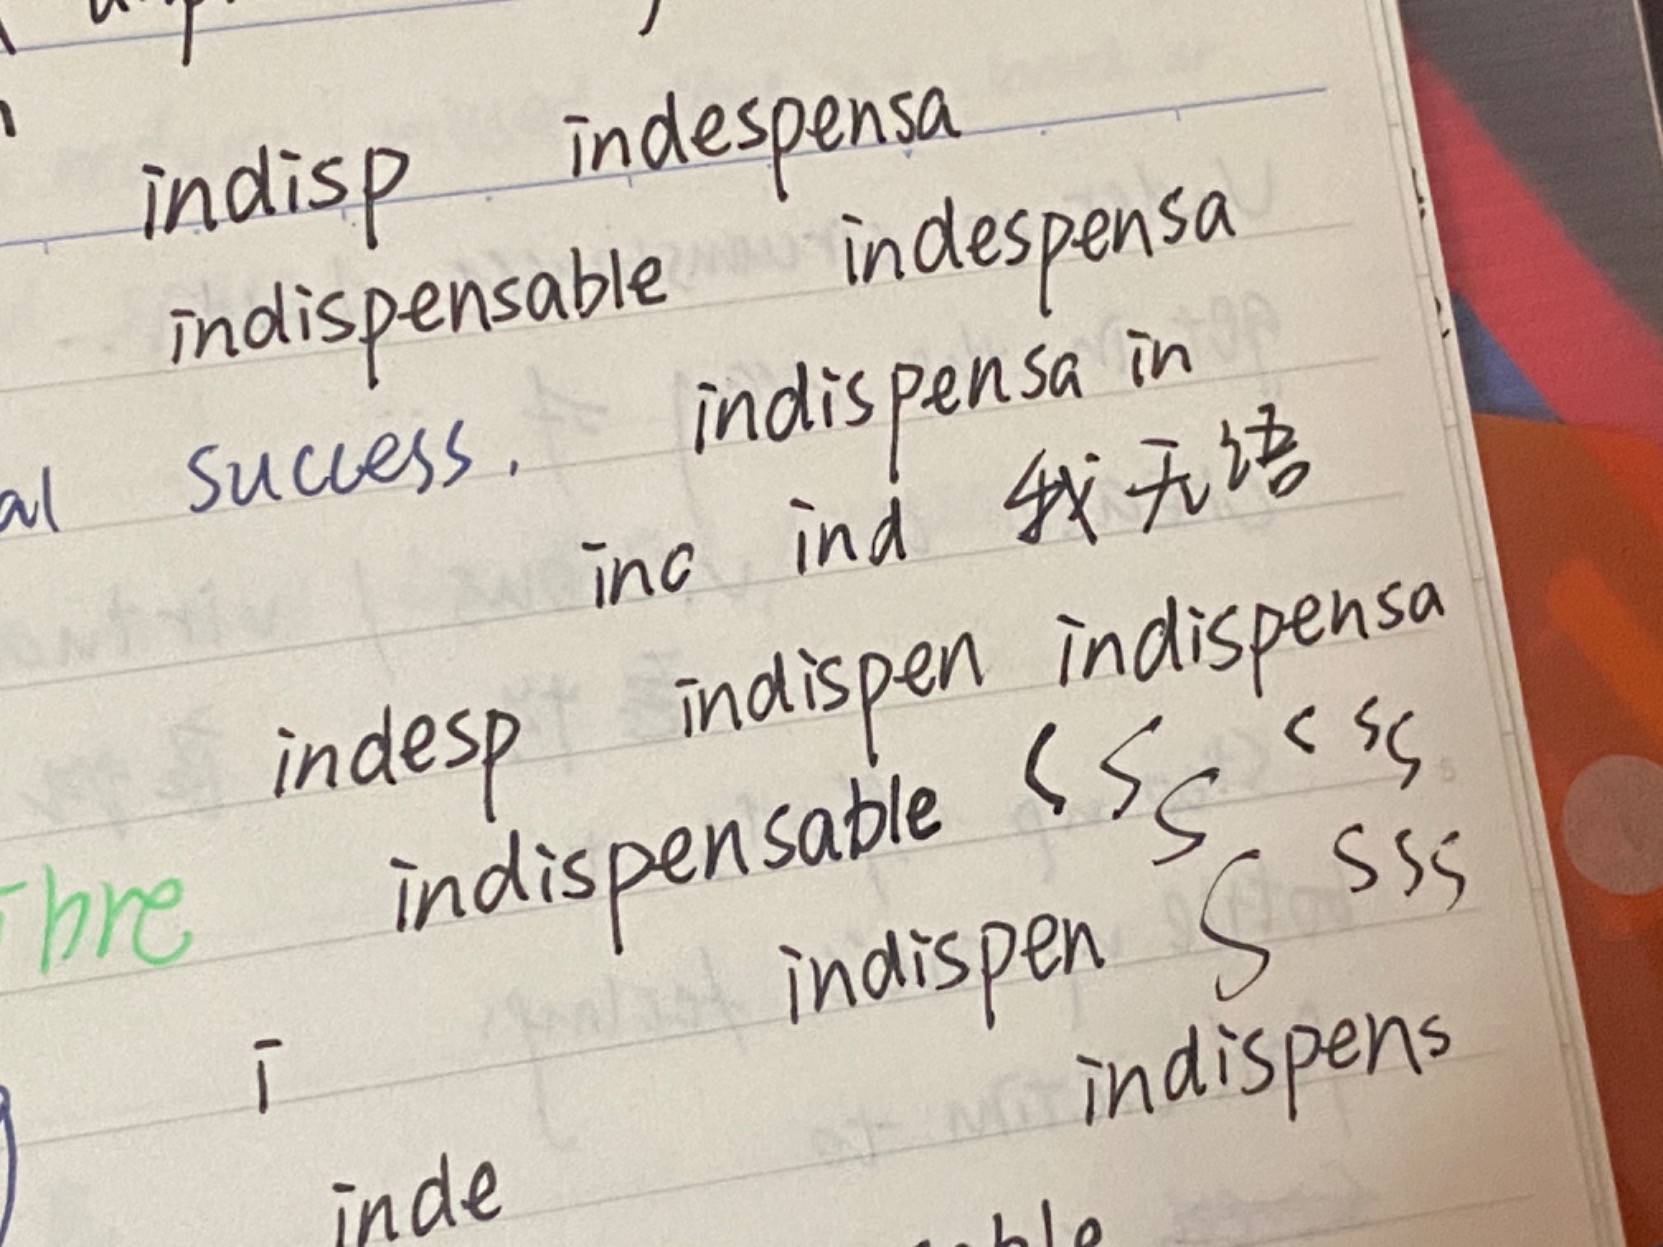 indisp indespensa
indispensable indespensa
indispensa in
al success.
inc ind 我无语
indesp indispen indispensa
indispensable
sss
indispen
i
indispens
inde